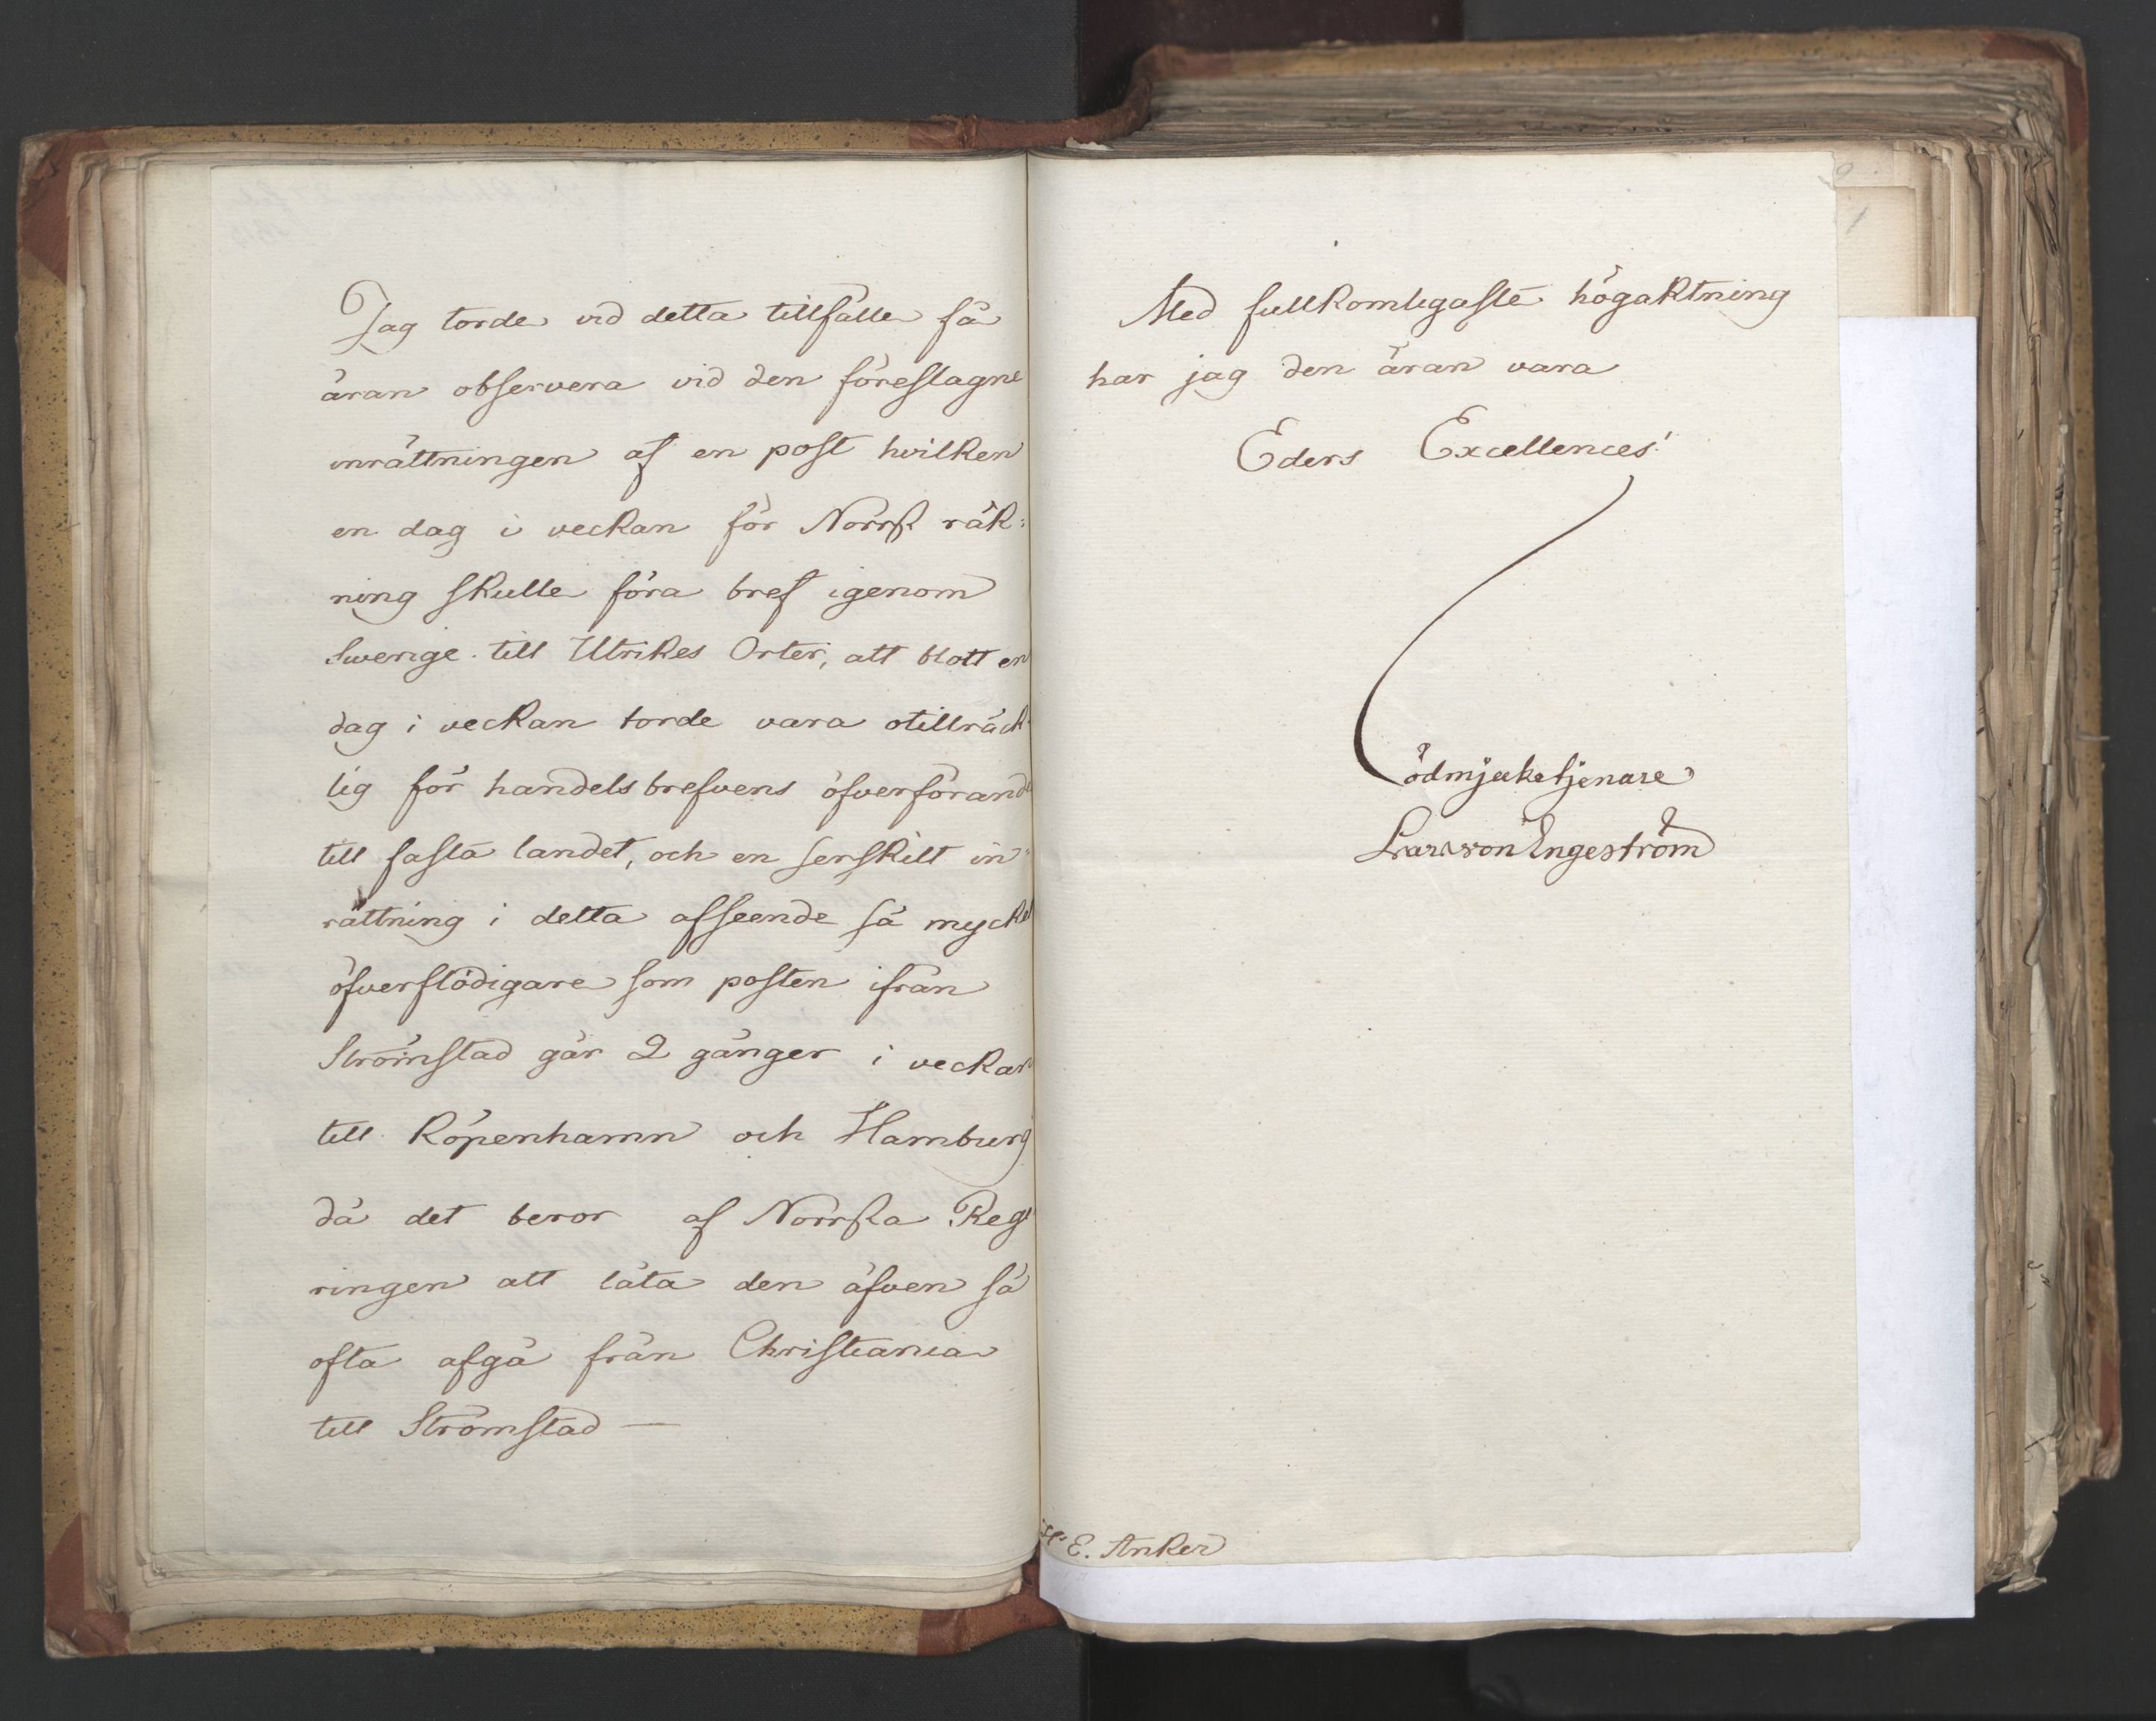 Jag torde vid detta tillfälle få
äran observera vid den föreslagne
inrättningen af en post hvilken
en dag i veckan för Norsk räk:
ning skulle föra bref igenom
Swerige till Utrikes Orter, att blott en
dag i veckan torde vara otillräck-
lig för handelsbrefvens öfverförande
till fasta landet, och en serskilt in-
rättning i detta afseende så mycket
öfverflödigare som posten ifrån
Strömstad går 2 gånger i veckan
till Köpenhamn och Hamburg
då det beror af Norrska Rege
ringen att låta den äfven så
ofta afgå från Christiania
till Strömstad —
Med fullkomligaste högaktning
har jag den äran vara
Eders Excellences
ödmjuke tjenare
Lars von Engeström
E. Anker